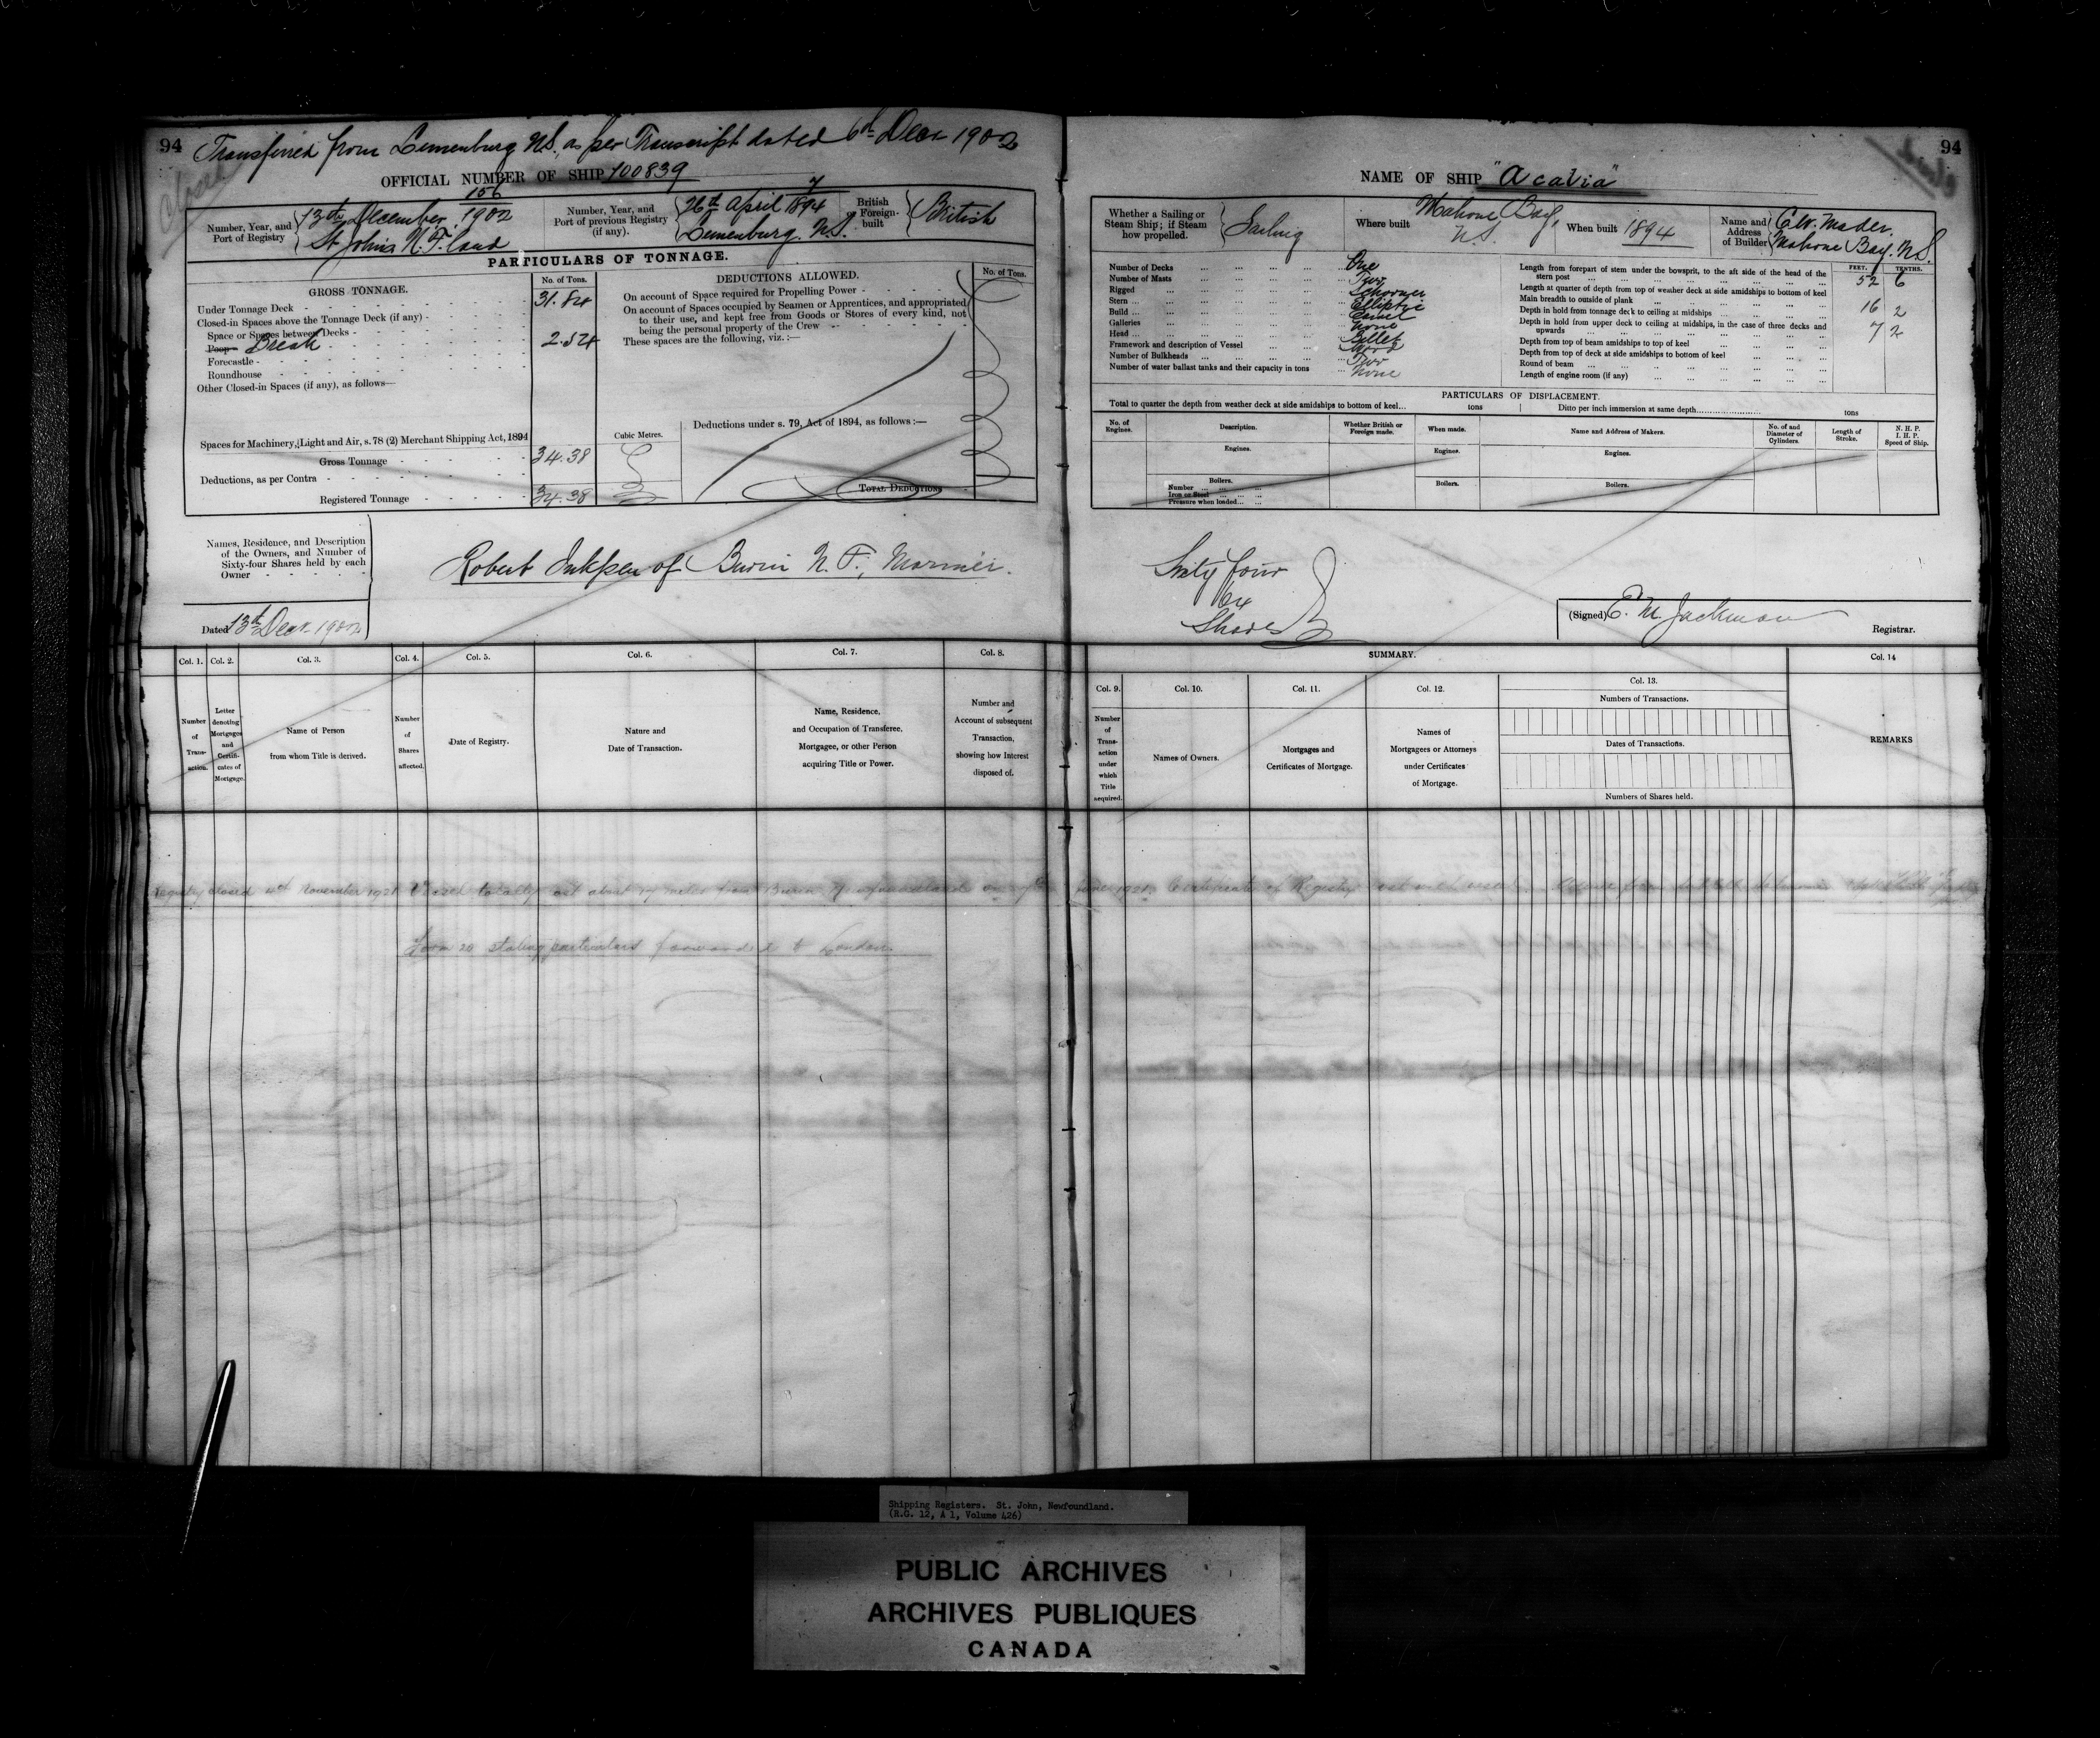 94
Transferred from Lunenburg N.S. as per Transcript dated 6th Decr 1902
OFFICIAL NUMBER OF SHIP 100839
Number, Year, and Port of Registry
156
13th December 1902
St Johns N.F. land
Number, Year, and Port of previous Registry (if any).
7
26th April 1894
Lunenburg. N.S.
British or Foreign-built
British
PARTICULARS OF TONNAGE.
GROSS TONNAGE.
No. of Tons.
Under Tonnage Deck 31.84
Closed-in Spaces above the Tonnage Deck (if any)
Space or Spaces between Decks
Poop Break 2.54
Forecastle
Roundhouse
Other Closed-in Spaces (if any), as follows—
Spaces for Machinery, Light and Air, s. 78 (2) Merchant Shipping Act, 1894
Cubic Metres.
Gross Tonnage 34.38
Deductions, as per Contra
Registered Tonnage 34.38
DEDUCTIONS ALLOWED.
No. of Tons.
On account of Space required for Propelling Power
On account of Spaces occupied by Seamen or Apprentices, and appropriated
to their use, and kept free from Goods or Stores of every kind, not
being the personal property of the Crew
These spaces are the following, viz.:—
Deductions under s. 79, Act of 1894, as follows:—
TOTAL DEDUCTIONS
Names, Residence, and Description
of the Owners, and Number of
Sixty-four Shares held by each
Owner
Robert Inkpen of Burin N.F., Mariner.
Dated 13th Decr 1902
Col. 1.
Number of Transaction.
Col. 2.
Letter denoting Mortgages and Certificates of Mortgage.
Col. 3.
Name of Person
from whom Title is derived.
Col. 4.
Number of Shares affected.
Col. 5.
Date of Registry.
Col. 6.
Nature and
Date of Transaction.
Col. 7.
Name, Residence,
and Occupation of Transferee,
Mortgagee, or other Person
acquiring Title or Power.
Col. 8.
Number and
Account of subsequent
Transaction,
showing how Interest
disposed of.
94
NAME OF SHIP "Acadia"
Whether a Sailing or
Steam Ship; if Steam
how propelled.
Sailing
Where built
Mahone Bay,
N.S.
When built 1894
Name and
Address
of Builder
Mader,
Mahone Bay. N.S.
Number of Decks One
Number of Masts Two
Rigged Schooner
Stern Elliptic
Build Carvel
Galleries None
Head Billet
Framework and description of Vessel Wood
Number of Bulkheads Two
Number of water ballast tanks and their capacity in tons None
FEET. TENTHS.
Length from forepart of stem under the bowsprit, to the aft side of the head of the
stern post 52 6
Length at quarter of depth from top of weather deck at side amidships to bottom of keel
Main breadth to outside of plank 16 2
Depth in hold from tonnage deck to ceiling at midships 7 2
Depth in hold from upper deck to ceiling at midships, in the case of three decks and
upwards
Depth from top of beam amidships to top of keel
Depth from top of deck at side amidships to bottom of keel
Round of beam
Length of engine room (if any)
PARTICULARS OF DISPLACEMENT.
Total to quarter the depth from weather deck at side amidships to bottom of keel... tons
Ditto per inch immersion at same depth tons
No. of Engines.
Description.
Whether British or Foreign made.
When made.
Name and Address of Makers.
No. of and Diameter of Cylinders.
Length of Stroke.
N. H. P.
I. H. P.
Speed of Ship.
Engines. Engines. Engines.
Boilers. Boilers. Boilers.
Number
Iron or Steel
Pressure when loaded
Sixty four
64
Shares
(Signed) E. M. Jackman
Registrar.
SUMMARY.
Col. 9.
Number of Transaction under which Title acquired.
Col. 10.
Names of Owners.
Col. 11.
Mortgages and
Certificates of Mortgage.
Col. 12.
Names of
Mortgagers or Attorneys
under Certificates
of Mortgage.
Col. 13.
Numbers of Transactions.
Dates of Transactions.
Numbers of Shares held.
Col. 14
REMARKS
Registry closed November 1921 Vessel totally lost about 14 miles from Burin Newfoundland on June 1921. Certificate of Registry lost with vessel.
Form 20 stating particulars forwarded to London.
Shipping Registers. St. John, Newfoundland.
(R.G. 12, A 1, Volume 426)
PUBLIC ARCHIVES
ARCHIVES PUBLIQUES
CANADA